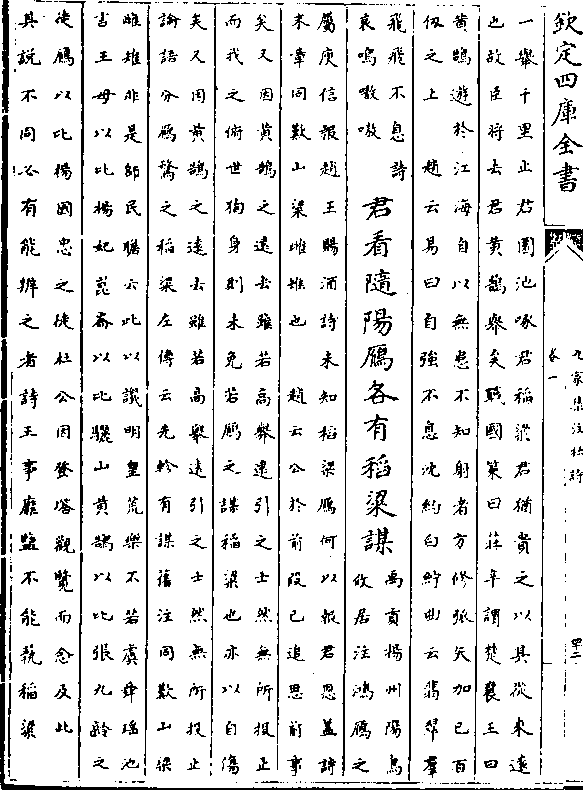 欽定四庫全書
九家集注杜詩
卷一
四二
一舉千里止君園池啄君稻粱君猶貴之以其從來遠
也故臣將去君黃鵠舉矣戰國策曰莊辛謂楚襄王曰
黃鵠遊於江海自以無患不知射者方修弧矢加己百
仞之上 趙云易曰自強不息沈約白紵曲云翡翠羣
飛飛不息詩
哀鳴嗷嗷
君看隨陽鴈各有稻粱謀
禹貢揚州陽鳥
攸居注鴻鴈之
屬庾信報趙王賜酒詩未知稻粱鴈何以報君恩蓋詩
末章同歎山梁雌雉也 趙云公於前段已追思前事
矣又因黃鵠之遠去雖若高舉遠引之士然無所投正
而我之俯世徇身則未免若鴈之謀稻粱也亦以自傷
矣又因黃鵠之遠去雖若高舉遠引之士然無所投止
論語分鴈鶩之稻粱左傳云先軫有謀舊注同歎山梁
雌雉非是師民瞻云此以譏明皇荒樂不若虞舜瑤池
言王母以比楊妃崑崙以比驪山黃鵠以比張九齡之
徒鴈以比楊國忠之徒杜公因登塔觀覽而念及此
其說不同必有能辨之者詩王事靡盬不能蓺稻粱